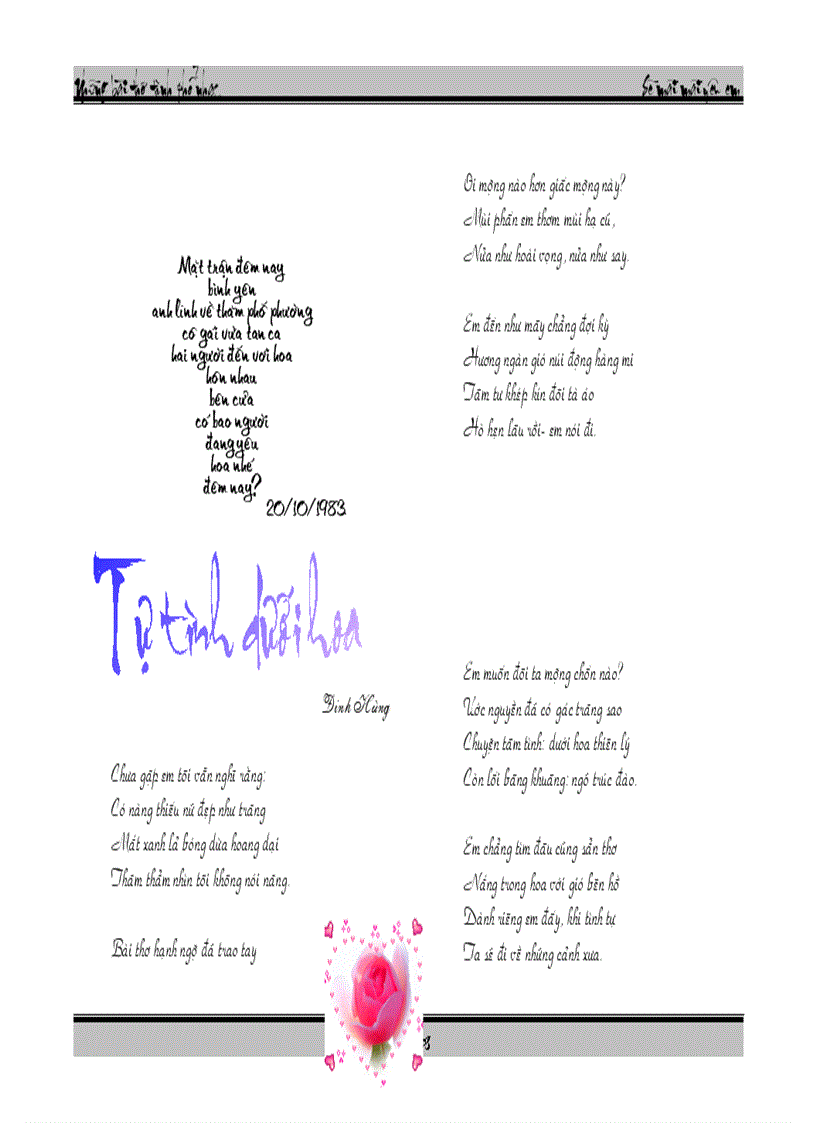 Những bài thơ tình phổ nhạc
Sẽ mãi mãi yêu em
Mặt trận đêm nay
bình yên
anh lính về thăm phố phường
cô gái vừa tan ca
hai người đến với hoa
hôn nhau
bên cửa
có bao người
đang yêu
hoa nhé
đêm nay?
20/10/1983
Tự tình dưới hoa
Đinh Hùng
Chưa gặp em tôi vẫn nghĩ rằng:
Có nàng thiếu nữ đẹp như trăng
Mắt xanh lả bóng dừa hoang dại
Thăm thẳm nhìn tôi không nói năng.
Bài thơ hạnh ngộ đã trao tay
Ôi mộng nào hơn giấc mộng này?
Mùi phấn em thơm mùi hạ cũ,
Nửa như hoài vọng, nửa như say.
Em đến như mây chẳng đợi kỳ
Hương ngàn gió núi động hàng mi
Tâm tư khép kín đôi tà áo
Hò hẹn lâu rồi- em nói đi.
Em muốn đôi ta mộng chốn nào?
Ước nguyền đã có gác trăng sao
Chuyện tâm tình: dưới hoa thiên lý
Còn lối bâng khuâng: ngõ trúc đào.
Em chẳng tìm đâu cũng sẵn thơ
Nắng trong hoa với gió bên hồ
Dành riêng em đấy, khi tình tự
Ta sẽ đi về những cảnh xưa.